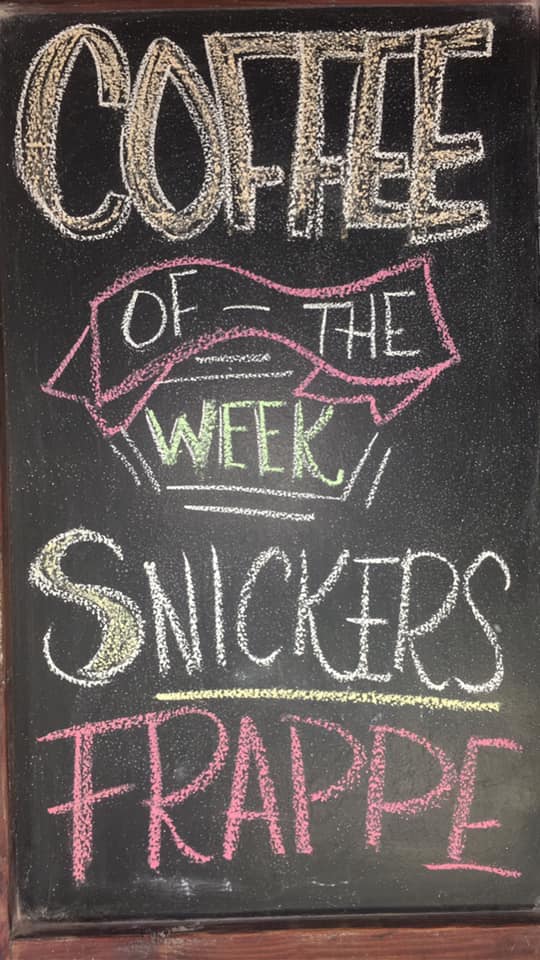 COFFEE
OF - THE
WEEK
SNICKERS
FRAPPE